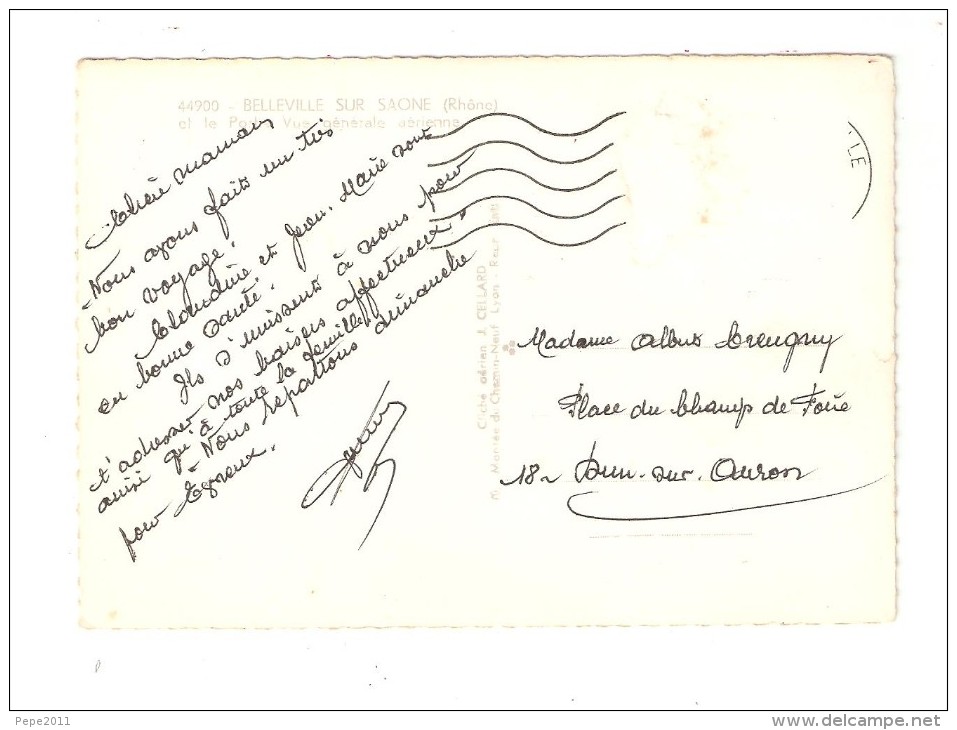 44900 - BELLEVILLE SUR SAONE (Rhône)
et le Port - Vue générale aérienne
Chère Maman
Nous avons faits un très
bon voyage.
Claudine et Jean-Marie sont
en bonne santé.
Ils s'unissent à nous pour
t'adresser nos baisers affectueux
ainsi qu'à toute la famille.
Nous repartions dimanche
pour Evreux.
Cliché aérien J. CELLARD
M. Montée du Chemin-Neuf Lyon
LE
Madame Albert
Place du Champ de Foire
18 - Dun-sur-Auron
Pepe2011
www.delcampe.net